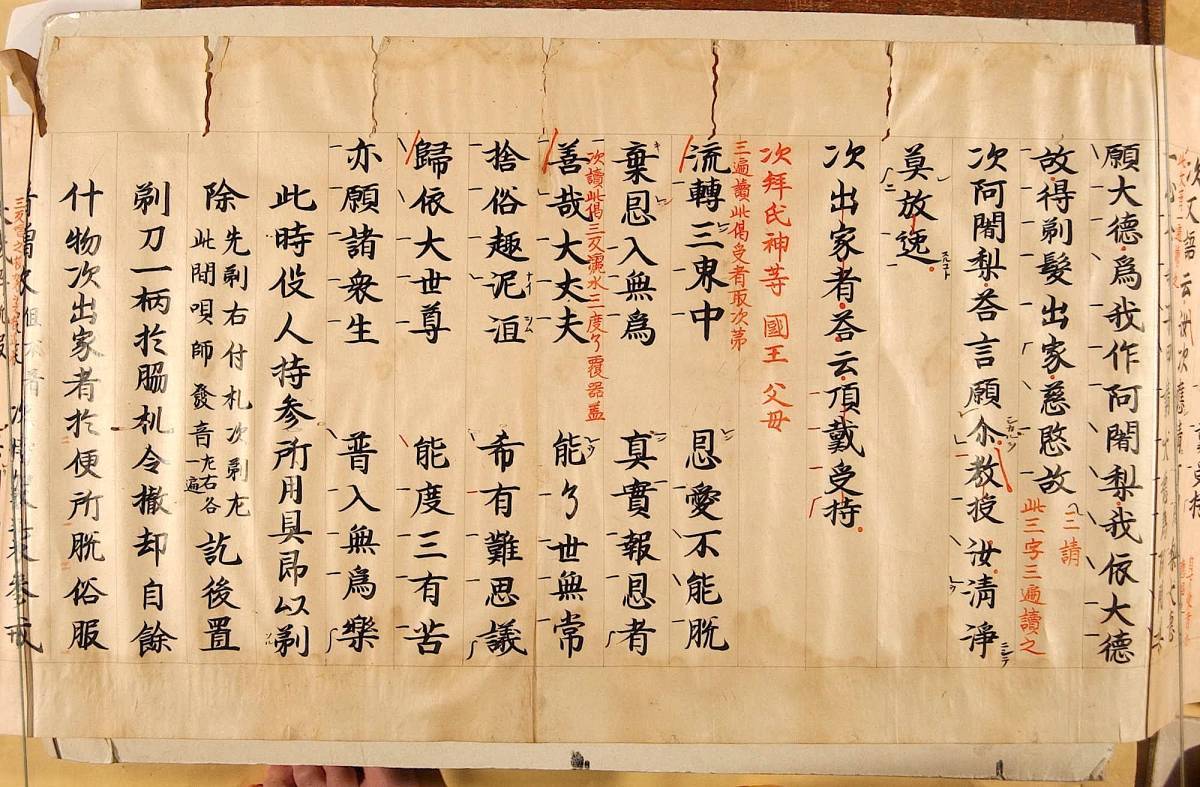 願大德爲我作阿闍梨我依大德
故得剃髮出家慈愍故
三請
此三字三遍讀之
次阿闍梨荅言願尒教授汝清淨
莫放逸
次出家者荅云頂戴受持
次拜氏神等 國王 父母
三遍讀此偈受者取次第
流轉三東中 恩愛不能脫
棄恩入無爲 真實報恩者
次讀此偈三反灑水三度了覆器盖
善哉大丈夫 能了世無常
捨俗趣泥洹 希有難思議
歸依大世尊 能度三有苦
亦願諸衆生 普入無爲樂
此時役人持参所用具即以剃
除先剃右付札次剃左
此間唄師發音左右各一遍
訖後置
剃刀一柄於脇机令撤却自餘
什物次出家者於便所脫俗服